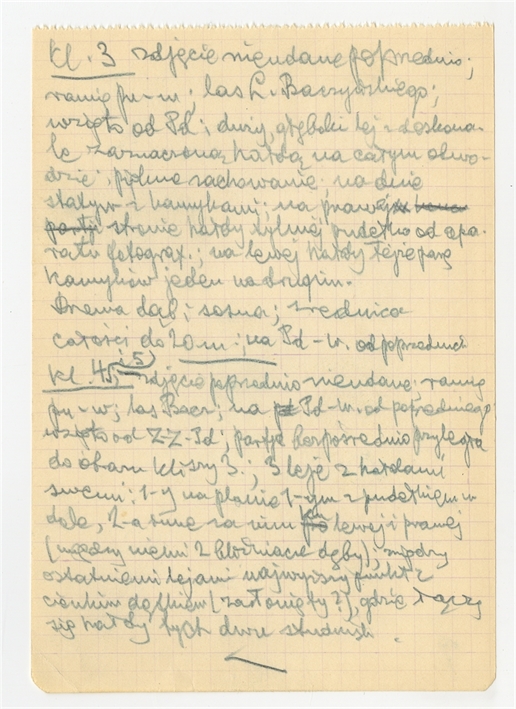 Kl. 3 zdjęcie nieudane poprzednio;
ramię pn-w; las L. Baczyńskiego;
wzięto od Pd; duży, głęboki lej z doskona-
le zaznaczoną hałdą na całym obwo-
dzie; piękne zachowanie; na dnie
statyw z kamykami; na prawej
stronie hałdy tylnej pudełko od apa-
ratu fotograf.; na lewej hałdy tejże parę
kamyków jeden na drugim.
Drzewa dąb i sosna; średnica
całości do 20 m; na Pd-W. od poprzedniej
Kl. 4 i 5) zdjęcie poprzednio nieudane; ramię
pn-w; las Bacz; na Pd-W. od poprzedniego
wzięto od Z-Z-Pd; partja bezpośrednio przyległa
do obrazu kliszy 3.; 3 leje z hałdami
swemi: 1-y na planie 1-ym z pudełkiem w
dole, 2-a inne za nim ku lewej i prawej
(między niemi 2 bliźniacze dęby); między
ostatniemi lejami najwyższy punkt z
cienkim dąbkiem (zasłonięty?), gdzie łączą
się hałdy tych dwu